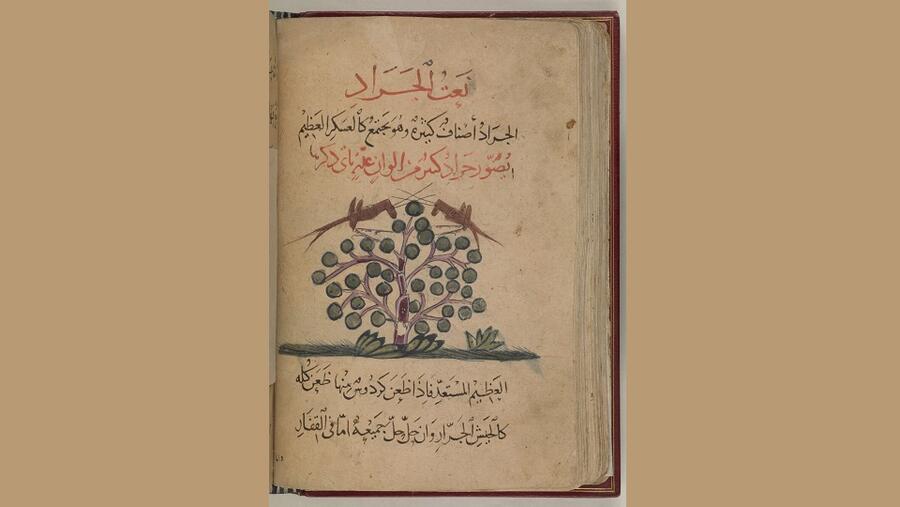 نَعتُ الجَرَاد
الجَرَادُ أصنافٌ كثيرة وهو يجتمعُ كالعَسكر العَظِيمْ
يُصَوَّر جراد كثير من الوان
العَظِيم المستَعدّ فإذا ظعَن كردوسٌ منها ظَعَن كله
كالجيش الجَرّار وان حَلّ حَلّ جميعهُ امّا في القفَار